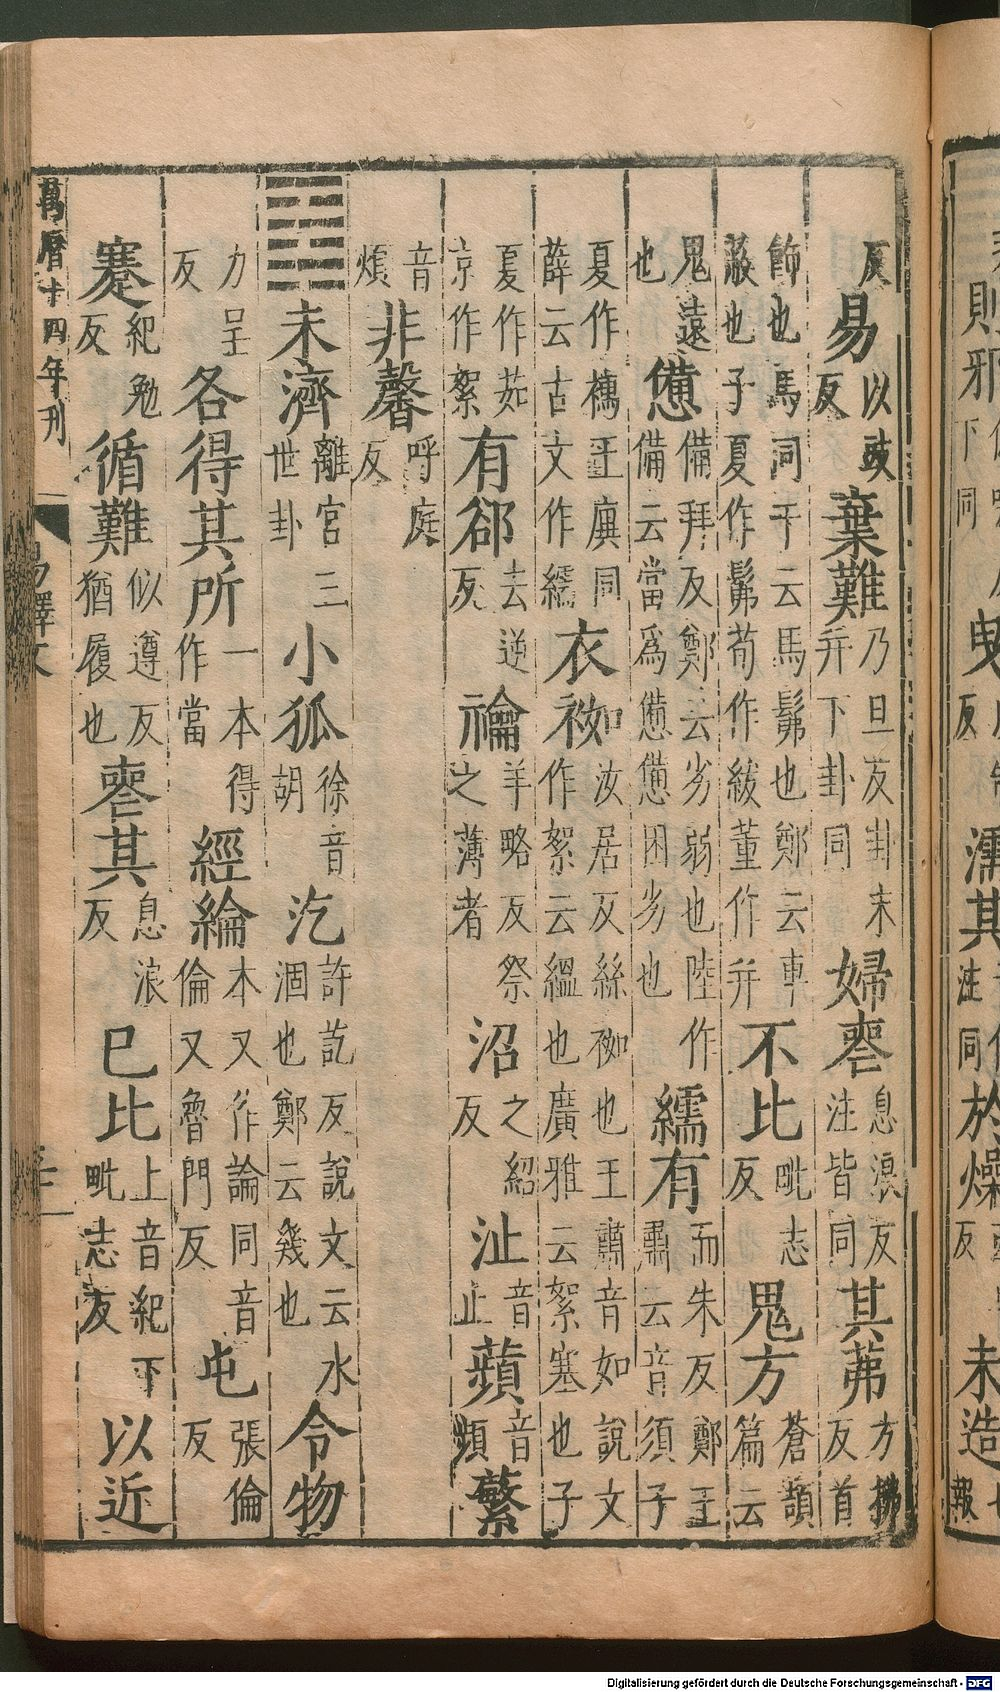 反易以豉反棄難乃旦反卦末并下卦同婦喪息浪反注皆同其茀方拂反首
飾也馬同干云馬髴也鄭云車蔽也子夏作髴荀作紱董作并不比毗志反鬼方蒼頡篇云
鬼遠也憊備拜反鄭云劣弱也陸作備云當爲憊憊困劣也繻有而朱反鄭王肅云音須子
夏作襦王廙同薛云古文作繻衣袽汝居反絲袽也王肅音如說文作絮云緼也廣雅云絮塞也子
夏作茹京作絮有郤去逆反禴羊略反祭之薄者沼之紹反沚音止蘋音頻蘩
音煩非馨呼庭反
䷿未濟離宮三世卦小狐徐音胡汔許訖反說文云水涸也鄭云幾也令物
力呈反各得其所一本得作當經綸本又作論同音倫又魯門反屯張倫反
蹇紀勉反循難似遵反猶履也喪其息浪反已比上音紀下毗志反以近
萬曆十四年刊 易釋文
Digitalisierung gefördert durch die Deutsche Forschungsgemeinschaft - DFG